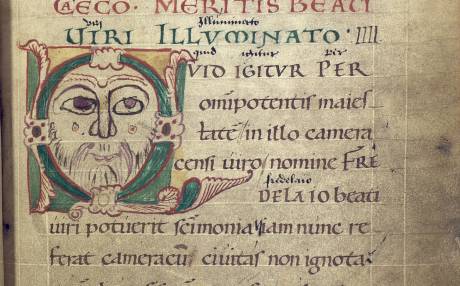 CAECO. MERITIS BEATI
viri Illuminato
VIRI ILLUMINATO. IIII
quid igitur per
QUID IGITUR PER
omipotentis maies
tate in illo camera
censi uiro nomine FRE
fredelaio
DELAIO beati
uiri potuerit scimonia iam nunc re
ferat cameracu ciuitas non ignota